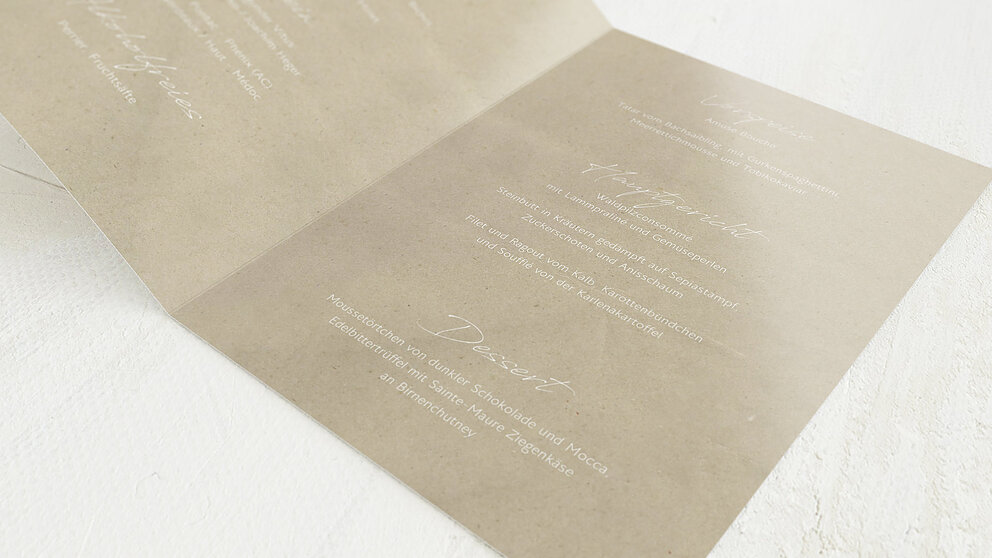 Phenix (AC)
Haut - Médoc
Alkoholfreies
Perrier Fruchtsäfte
Vorspeise
Amuse Bouche
Tatar vom Bachsaibling mit Gurkenspaghettini,
Meerrettichmousse und Tobikokaviar
Hauptgericht
Waldpilzconsommé
mit Lammpraliné und Gemüseperlen
Steinbutt in Kräutern gedämpft auf Sepiastampf,
Zuckerschoten und Anisschaum
Filet und Ragout vom Kalb Karottenbündchen
und Soufflé von der Karlenakartoffel
Dessert
Moussetörtchen von dunkler Schokolade und Mocca,
Edelbittertrüffel mit Sainte-Maure Ziegenkäse
an Birnenchutney